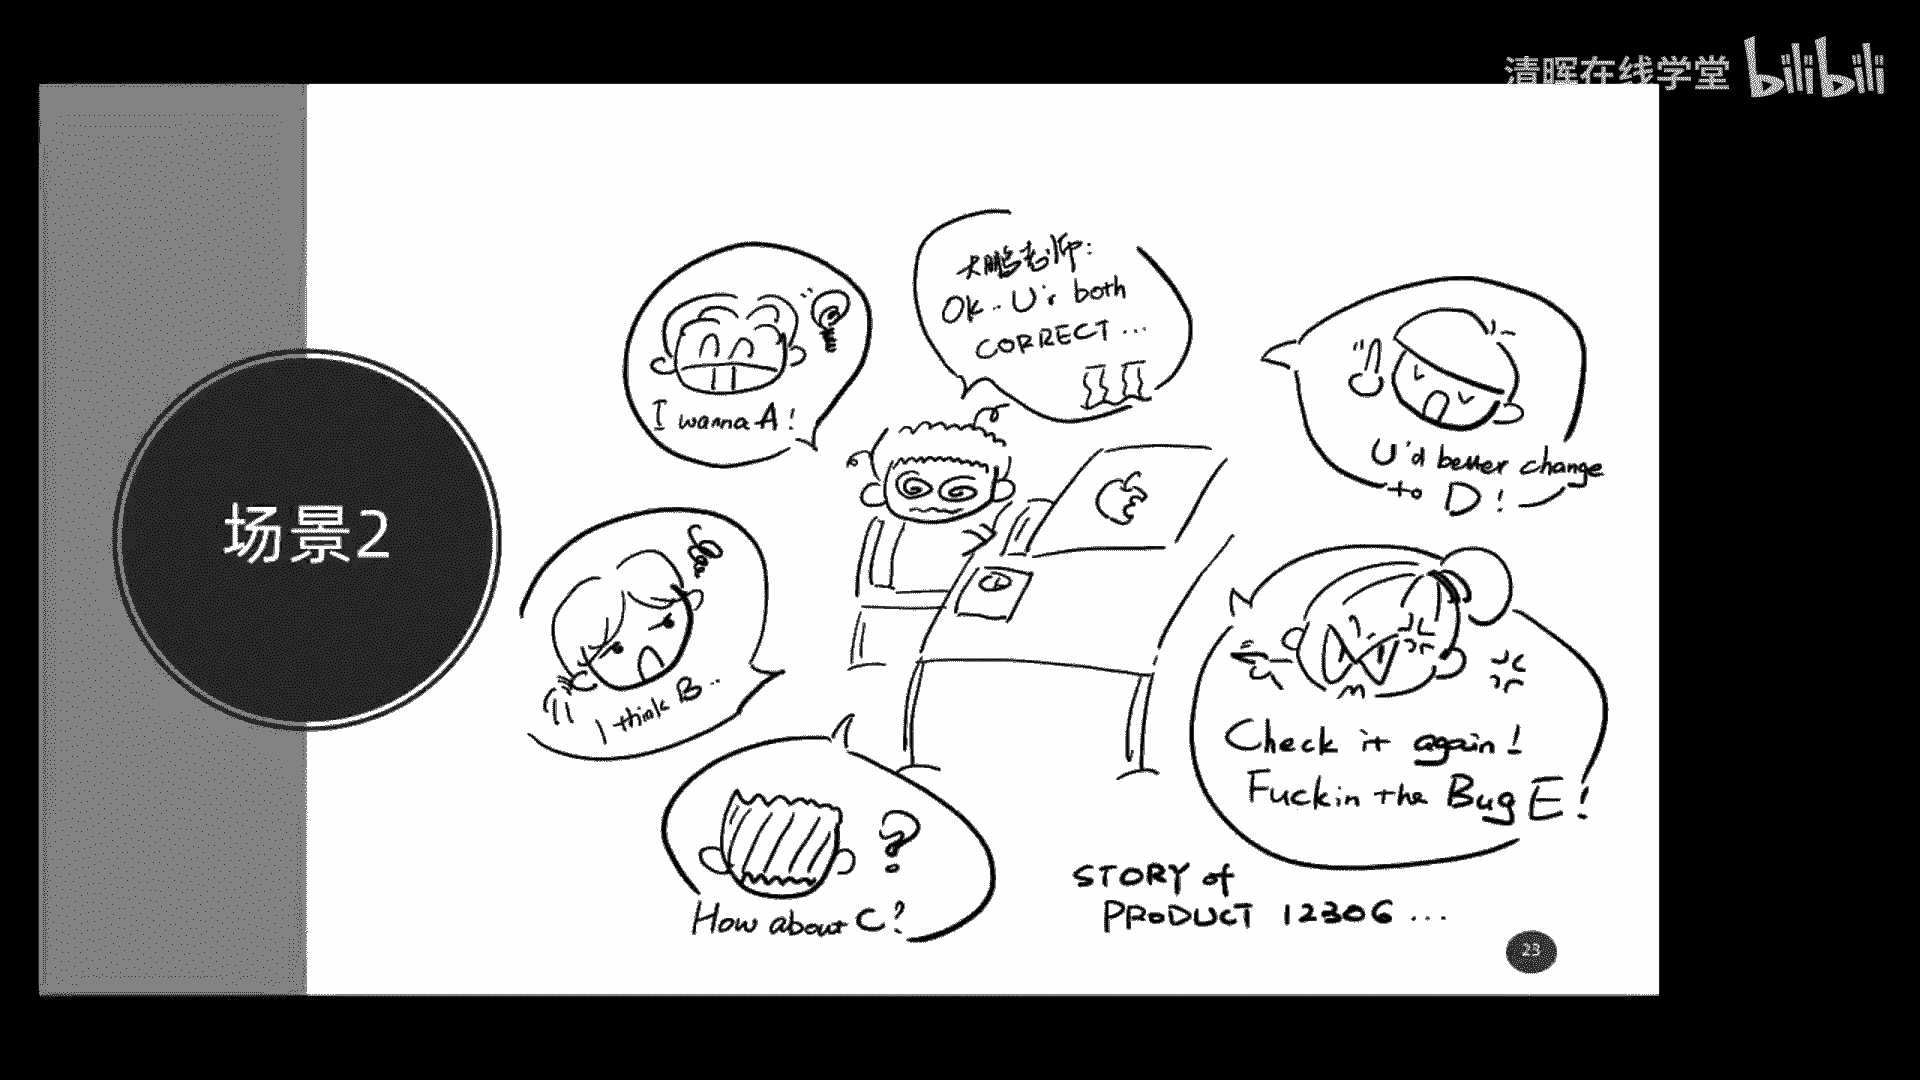 清晖在线学堂 bilibili
场景2
I wanna A!
大鹏老师:
Ok.. U'r both
CORRECT...
U'd better change
to D!
I think B..
Check it again!
Fuckin the Bug E!
How about C?
STORY of
PRODUCT 12306...
23